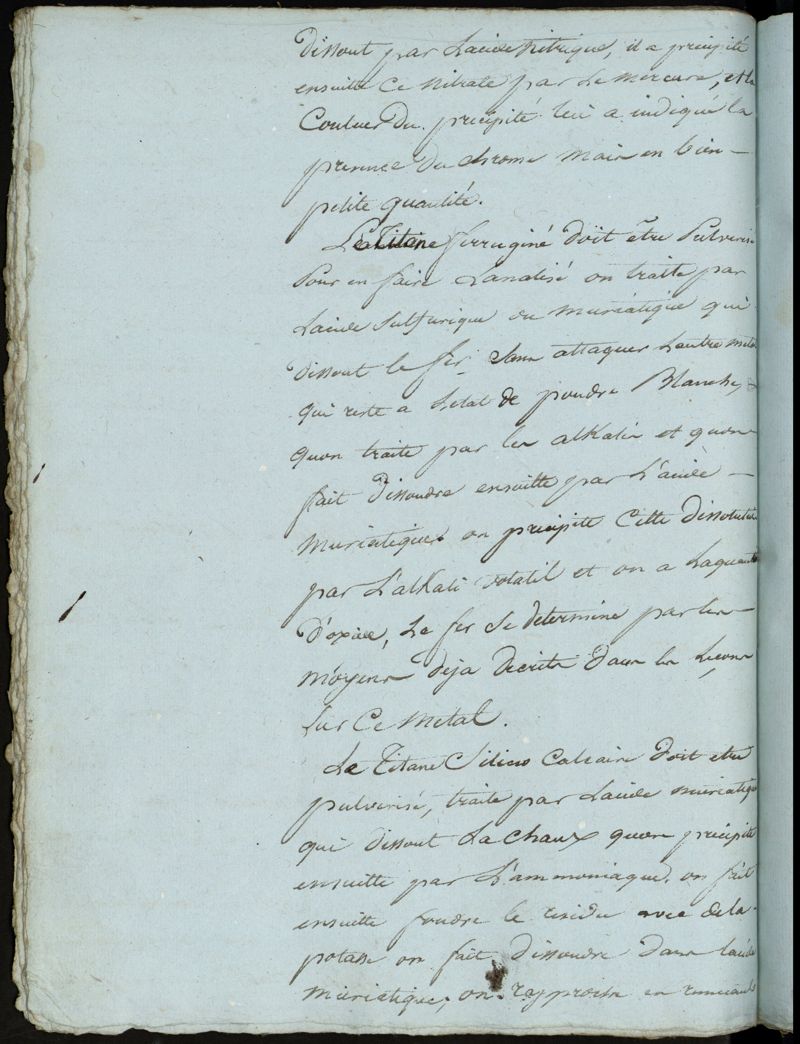 dissout par Lacide Nitrique, il a precipité
ensuitte Ce Nitrate par Le Mercure, et la
Couluer du precipité lui a indiqué la
presence du chrome mais en bien
petite quantité.
Le Titane ferruginé doit être Pulverisé
Pour en faire Lanalisé on traite par
Lacide Sulfurique ou muriatique qui
dissout le fer Sans attaquer Lautre metal
qui reste a Letat de poudre Blanche,
quon traite par les alkalis et quon
fait dissoudre ensuitte par L'acide
Muriatique. on precipite Cette dissolution
par L'alkali volatil et on a Laquantité
D'oxide, Le fer Se determine par les
moyens deja decrits dans les Lecons
Sur Ce Metal.
Le Titane Siliceo Calcaire doit etre
pulverisé, traite par Lacide muriatique
qui dissout La chaux quon precipite
ensuitte par L'ammoniaque. on fait
ensuitte foudre le residu avec de la
potasse on fait dissoudre dans lacide
muriatique, on rapproche en remuant